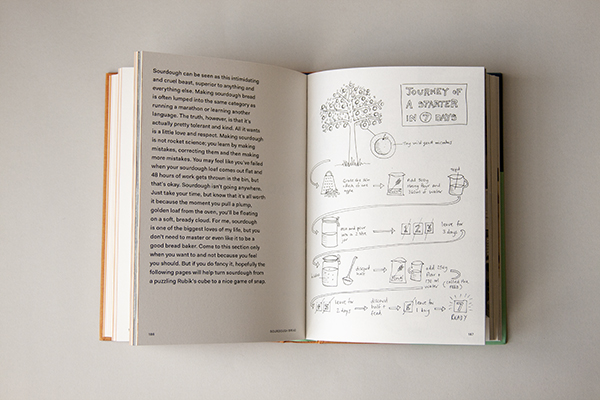 Sourdough can be seen as this intimidating
and cruel beast, superior to anything and
everything else. Making sourdough bread
is often lumped into the same category as
running a marathon or learning another
language. The truth, however, is that it's
actually pretty tolerant and kind. All it wants
is a little love and respect. Making sourdough
is not rocket science; you learn by making
mistakes, correcting them and then making
more mistakes. You may feel like you've failed
when your sourdough loaf comes out flat and
48 hours of work gets thrown in the bin, but
that's okay. Sourdough isn't going anywhere.
Just take your time, but know that it's all worth
it because the moment you pull a plump,
golden loaf from the oven, you'll be floating
on a soft, bready cloud. For me, sourdough
is one of the biggest loves of my life, but you
don't need to master or even like it to be a
good bread baker. Come to this section only
when you want to and not because you feel
you should. But if you do fancy it, hopefully the
following pages will help turn sourdough from
a puzzling Rubik's cube to a nice game of snap
JOURNEY OF
A STARTER
IN 7 DAYS
Grate the skin
Add
mix and
in a
jar
1 2 3
leave for
3 days
discard
half
add
flour &
water
leave for
2 days
discard
half &
feed
6
leave for
1 day
7
READY